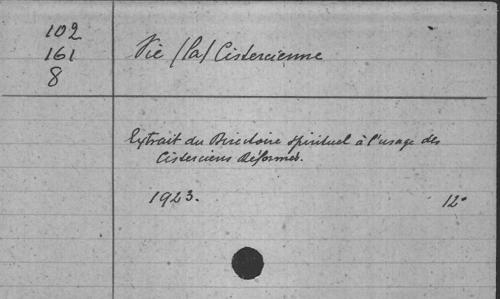 102
161
8
Vie (La) Cistercienne
Extrait du Directoire spirituel à l'usage des
Cisterciens Réformés.
1923. 12°